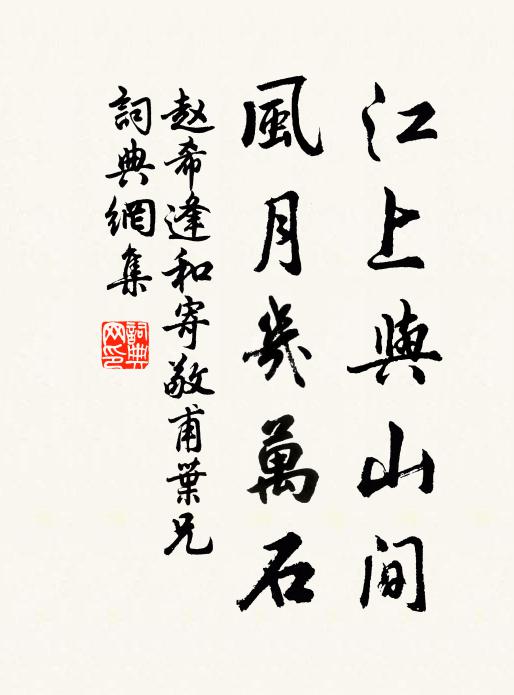 江上與山間
風月幾萬石
赵希逢和寄敬甫葉兄
詞典網集
詞典网印